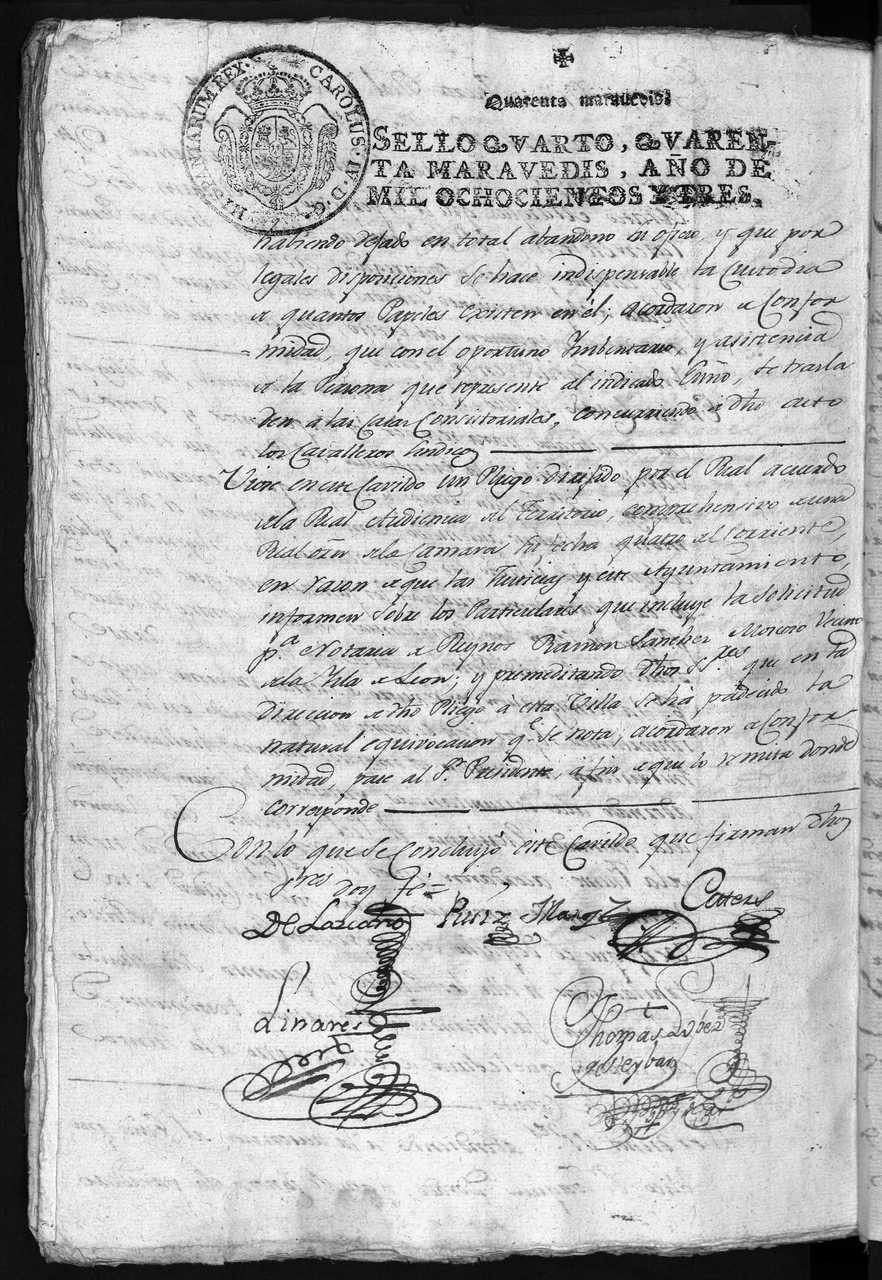 HISPANIARUM REX · CAROLUS · IV · D · G ·
Quarenta maravedis.
SELLO QVARTO, QVAREN-
TA MARAVEDIS, AÑO DE
MIL OCHOCIENTOS Y TRES.
habiendo dejado en total abandono su oficio, y que por
legales disposiciones se hace indispensable la Custodia
a quantos Papeles existen en él; acordaron a Confor
midad, que con el oportuno Imbentario, y asistencia
a la Persona que represente al indicado Cuño, se trasla
den a las Casas Consistoriales, concurriendo a dho acto
los Cavalleros Sindicos
Viose en este Cavildo un Pliego dirijido por el Real acuerdo
a la Real Audiencia al Territorio, comprehensivo a una
Real orn a la Camara su fecha quatro al Corriente,
en razon a que las Justicias y este Ayuntamiento,
informen sobre los Particulares que incluye la solicitud
pa Notaria a Reynos Ramon Sanchez Vecino
a la Ysla a Leon; y premeditando dhos Sres que en la
Direccion a dho Pliego à esta Villa se ha padecido la
natural equivocacion qe se nota, acordaron a Confor
midad, pase al Sr Presidente, á fin a que lo remita donde
corresponde
Con lo que se Concluyó este Cavildo que firman dhos
Sres doy fé =
De Lozano Ruiz Marqz
Linares
Thomas Lopez